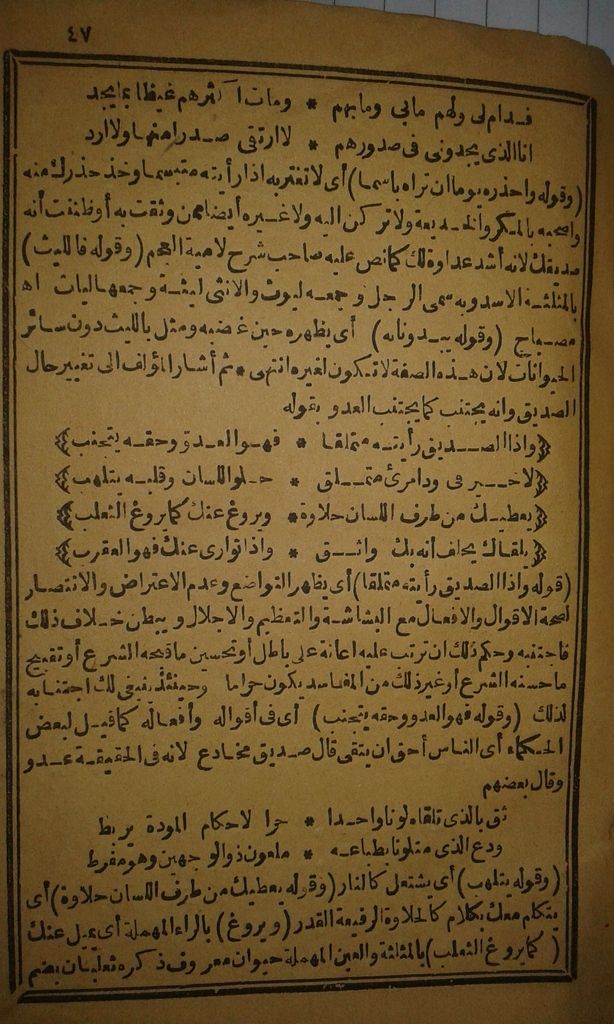 ٤٧
فدام لى ولهم مابى وما بهم * ومات اكثرهم غيظا بما يجد
انا الذى يجدونى فى صدورهم * لا ارتقى صدرا منها ولا ارد
(وقوله واحذره يوما ان تراه باسما) أى لا تغتر به اذا رأيته متبسما وخذ حذرك منه
واصحبه بالمكر والخديعة ولا تركن اليه ولا غيره أيضا ممن وثقت به أو ظننت أنه
صديقك لانه أشد عداوة لك كما نص عليه صاحب شرح لامية العجم (وقوله فالليث)
بالمثلثة الاسد وبه سمى الرجل وجمعه ليوث والانثى ليثة وجمعها ليات اه
مصباح (وقوله يبدو نابه) أى يظهره حين غضبه ومثل بالليث دون سائر
الحيوانات لان هذه الصفة لا تكون لغيره انتهى * ثم أشار المؤلف الى تغيير حال
الصديق وانه يجتنب كما يجتنب العدو بقوله
﴿واذا الصديق رأيته متملقا * فهو العدو وحقه يتجنب﴾
﴿لا خير فى ود امرئ متملق * حلو اللسان وقلبه يتلهب﴾
﴿يعطيك من طرف اللسان حلاوة * ويروغ عنك كما يروغ الثعلب﴾
﴿يلقاك يحلف أنه بك واثق * واذا توارى عنك فهو العقرب﴾
(قوله واذا الصديق رأيته متملقا) أى يظهر التواضع وعدم الاعتراض والانتصار
لصحة الاقوال والافعال مع البشاشة والتعظيم والاجلال ويبطن خلاف ذلك
فاجتنبه وحكم ذلك ان ترتب عليه اعانة على باطل أو تحسين ما قبحه الشرع أو تقبيح
ما حسنه الشرع أو غير ذلك من المفاسد يكون حراما وحينئذ ينبغى لك اجتنابه
لذلك (وقوله فهو العدو وحقه يتجنب) أى فى أقواله وأفعاله كما قيل لبعض
الحكماء أى الناس أحق ان يتقى قال صديق مخادع لانه فى الحقيقة عدو
وقال بعضهم
ثق بالذى تلقاه لونا واحدا * حرا لاحكام المودة يربط
ودع الذى متلونا بطباعه * ملعون ذو الوجهين وهو مفرط
(وقوله يتلهب) أى يشتعل كالنار (وقوله يعطيك من طرف اللسان حلاوة) أى
يتكلم معك بكلام كالحلاوة الرفيعة القدر (ويروغ) بالراء المهملة أى يميل عنك
(كما يروغ الثعلب) بالمثلثة والعين المهملة حيوان معروف ذكره ثعلبان بضم